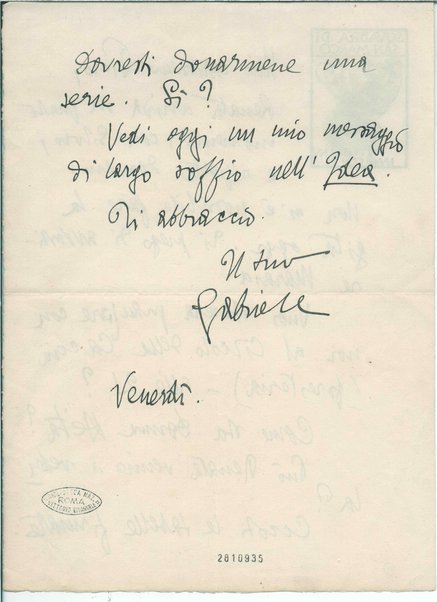 Dovresti donarmene una
serie. Sì?
Vedi oggi un mio messaggio
di largo soffio nell' Idea.
Ti abbraccio.
Il tuo
Gabriele
Venerdì.
BIBLIOTECA NAZ.
ROMA
VITTORIO EMANUELE
2810935